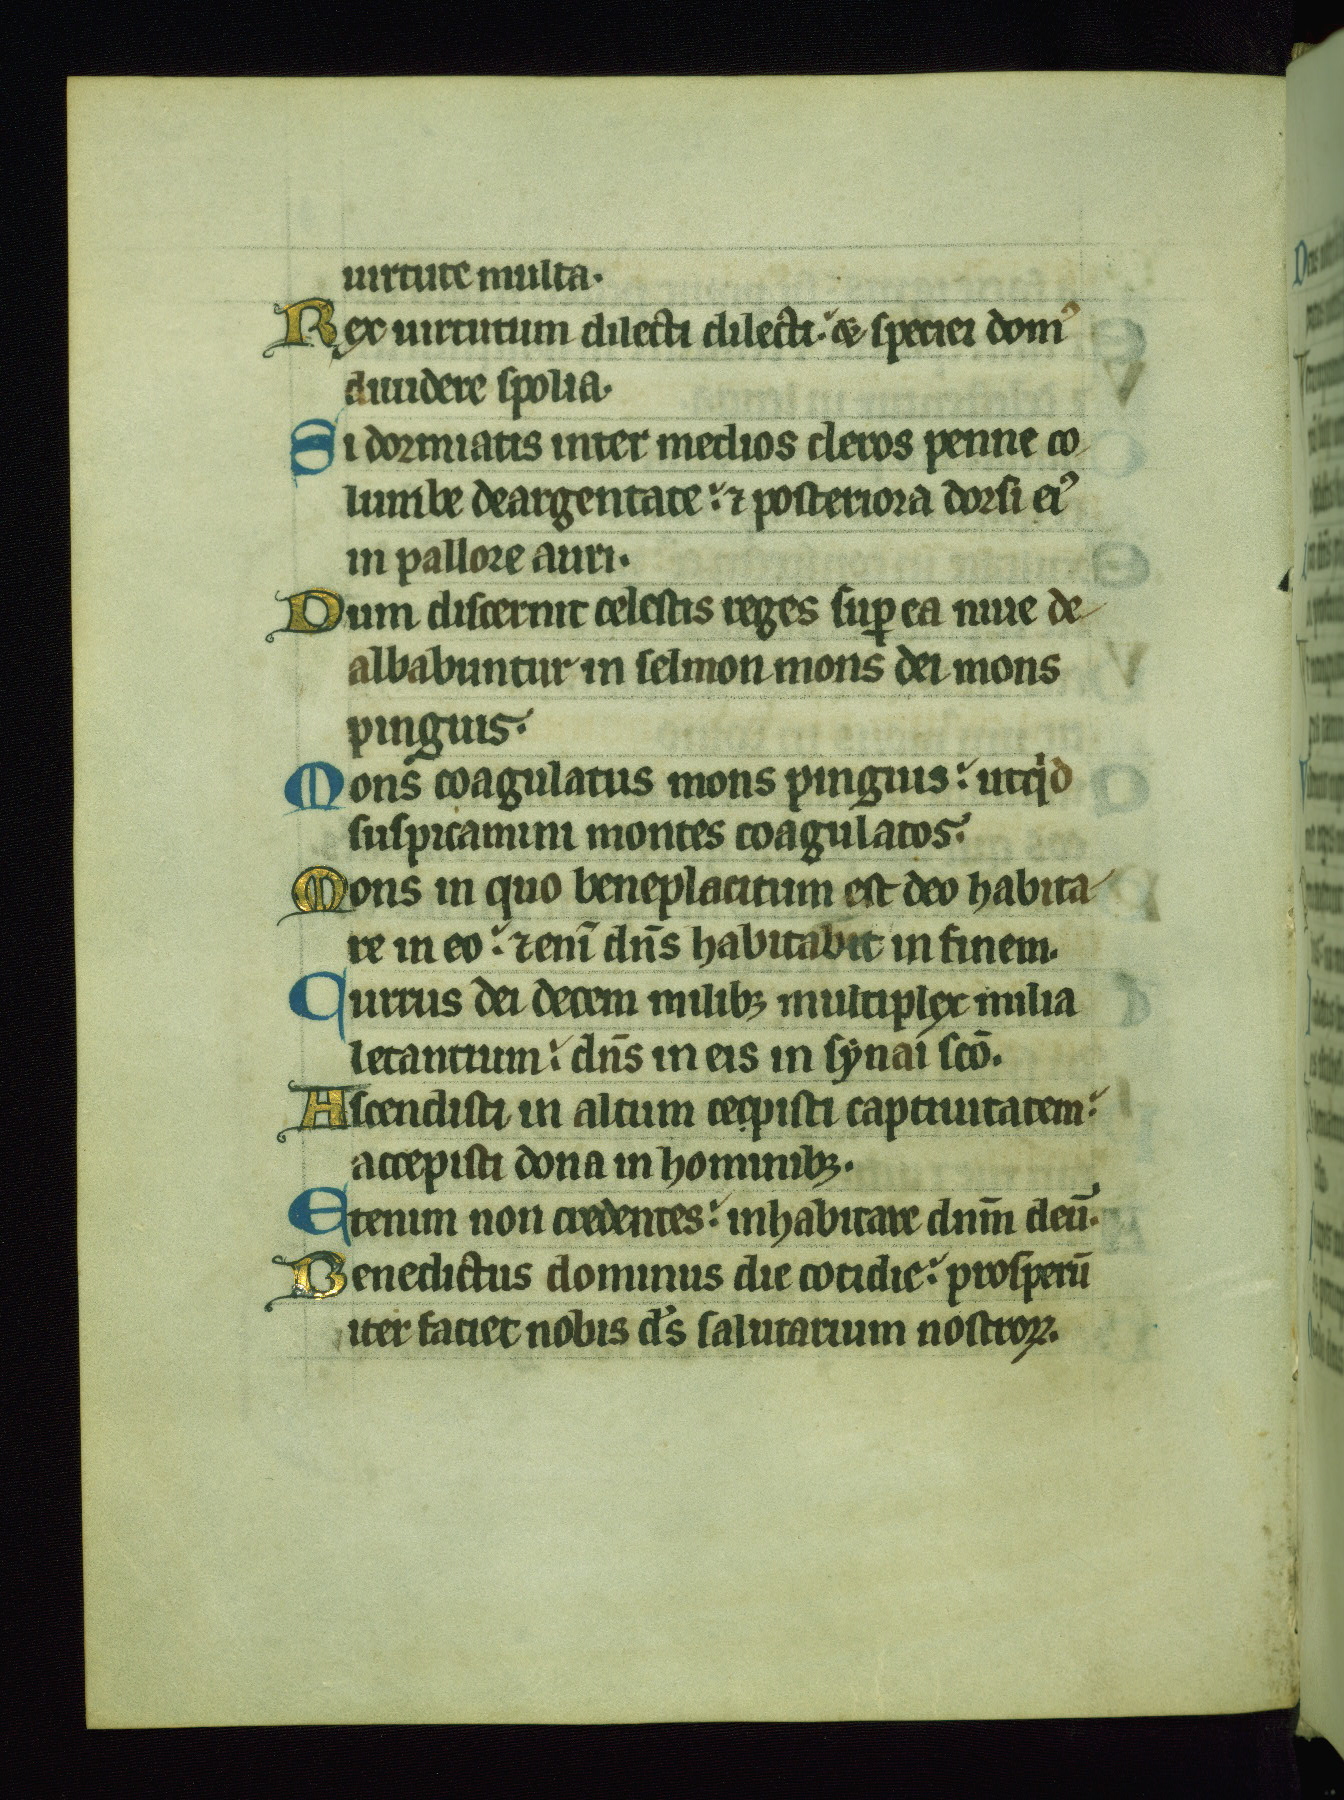 uirtute multa.
Rex uirtutum dilecti dilecti: & speciei domꝰ
diuidere spolia.
Si dormiatis inter medios cleros penne co
lumbe deargentate: ⁊ posteriora dorsi eiꝰ
in pallore auri.
Dum discernit celestis reges suꝑ ea niue de
albabuntur in selmon mons dei mons
pinguis.
Mons coagulatus mons pinguis: utqͥd
suspicamini montes coagulatos.
Mons in quo beneplacitum est deo habita
re in eo: ⁊enī dn̄s habitabit in finem.
Currus dei decem milibꝫ multiplex milia
letantium: dn̄s in eis in synai scō.
Ascendisti in altum cecpisti captiuitatem:
accepisti dona in hominibꝫ.
Etenim non credentes: inhabitare dnm̄ deū.
Benedictus dominus die cotidie: prosperū
iter faciet nobis d̄s salutarium nostroꝝ.